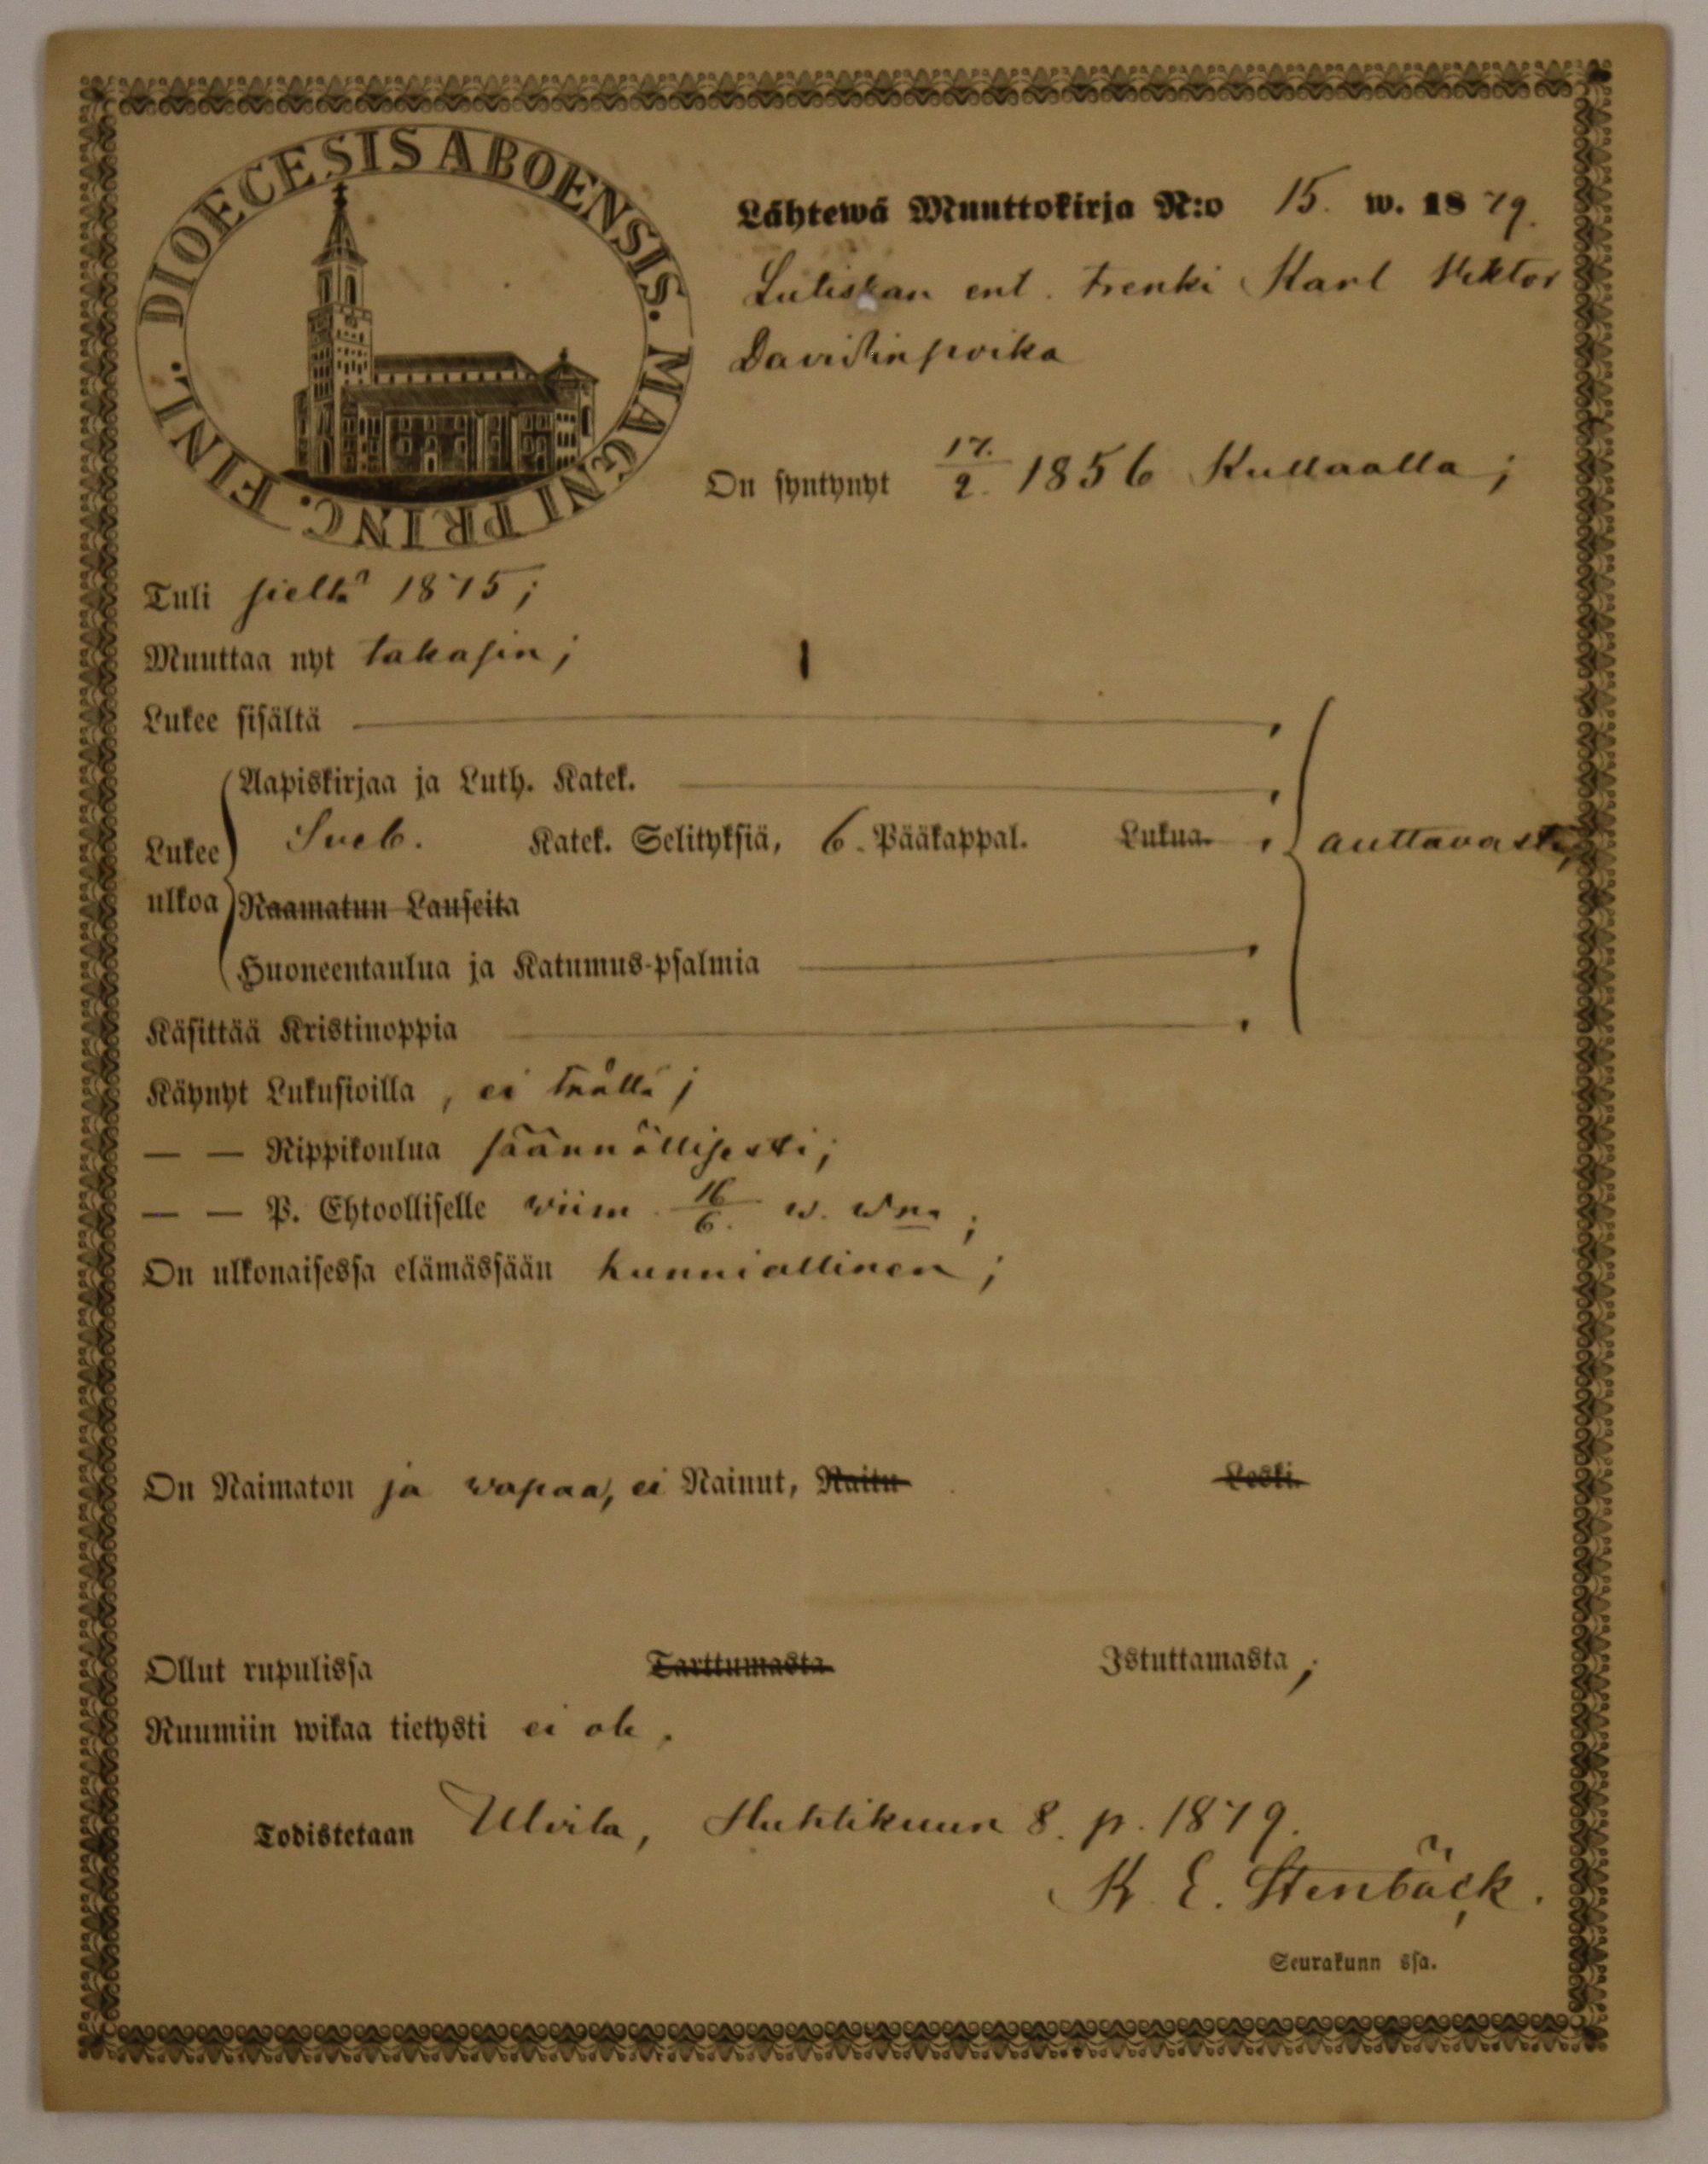 DIOECESIS ABOENSIS. MAGNI PRINC. FINL.
Lähtewä Muuttokirja N:o 15. w. 1879.
ent. trenki Karl Viktor
Davidinpoika
On syntynyt 17./2. 1856 Kullaalla;
Tuli sieltä 1875;
Muuttaa nyt takasin;
Lukee sisältä
Aapiskirjaa ja Luth. Katek.
Lukee ulkoa Sveb. Katek. Selityksiä, 6. Pääkappal. Lukua. auttavasti,
Raamatun Lauseita
Huoneentaulua ja Katumus-psalmia
Käsittää Kristinoppia
Käynyt Lukusioilla, ei täällä;
— — Rippikoulua säännöllisesti;
— — P. Ehtoolliselle viim 16/6. w. wna;
On ulkonaisessa elämässään kunniallinen;
On Naimaton ja vapaa, ei Nainut, Naitu Leski.
Ollut rupulissa Tarttumasta Istuttamasta;
Ruumiin wikaa tietysti ei ole.
Todistetaan Ulvila, Huhtikuun 8. p. 1879.
K. E. Stenbäck.
Seurakunn ssa.